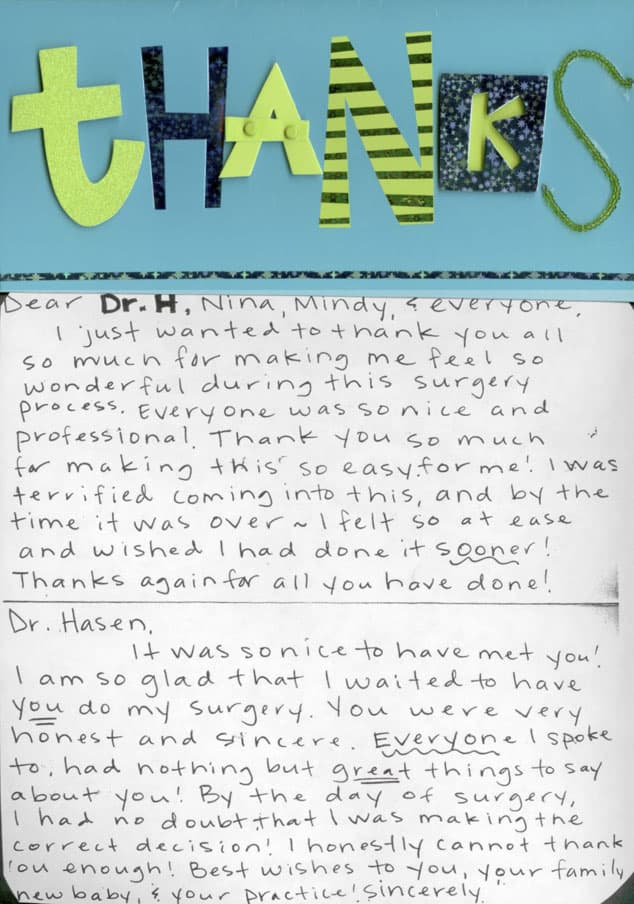 tHANKS
Dear Dr. H, Nina, Mindy, & everyone,
I just wanted to thank you all
so much for making me feel so
wonderful during this surgery
process. Everyone was so nice and
professional. Thank you so much
for making this so easy for me! I was
terrified coming into this, and by the
time it was over ~ I felt so at ease
and wished I had done it sooner!
Thanks again for all you have done!
Dr. Hasen,
It was so nice to have met you!
I am so glad that I waited to have
you do my surgery. You were very
honest and sincere. Everyone I spoke
to, had nothing but great things to say
about you! By the day of surgery,
I had no doubt, that I was making the
correct decision! I honestly cannot thank
you enough! Best wishes to you, your family,
new baby, & your practice! Sincerely,